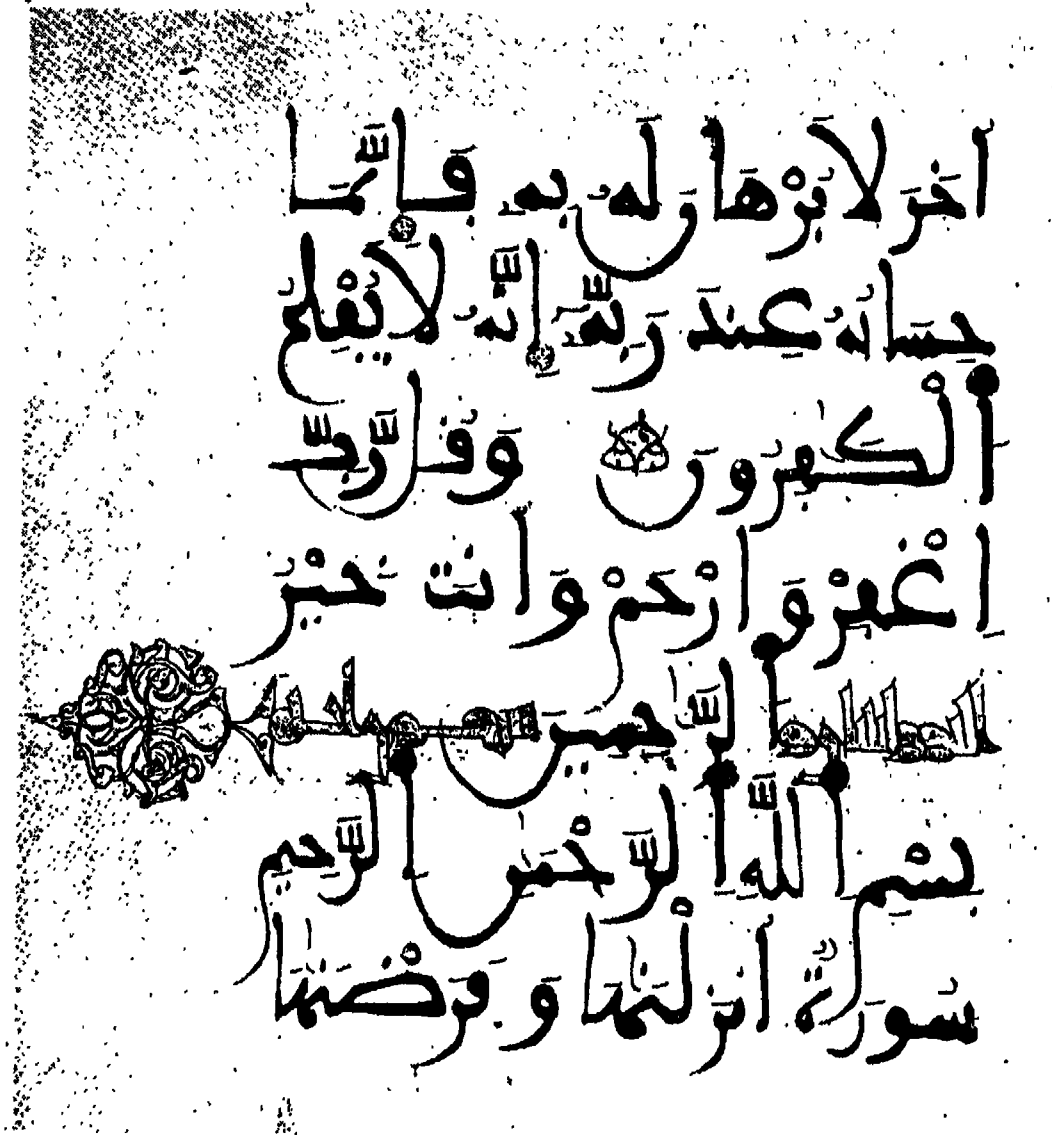 اَخَرَ لَا بُرْهَٰنَ لَهُۥ بِهِۦ فَإِنَّمَا
حِسَابُهُۥ عِندَ رَبِّهِۦٓ إِنَّهُۥ لَا يُفْلِحُ
اُ۬لْكَٰفِرُونَ وَقُل رَّبِّ
اِغْفِرْ وَارْحَمْ وَأَنتَ خَيْرُ
اُ۬لرَّٰحِمِينَ
بِسْمِ اِ۬للَّهِ اِ۬لرَّحْمَٰنِ اِ۬لرَّحِيمِ
سُورَةٌ اَنزَلْنَٰهَا وَفَرَضْنَٰهَا